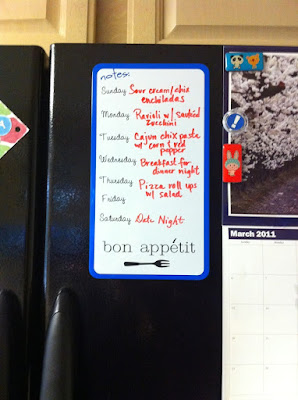 notes:
Sunday Sour cream/chix
enchiladas
Monday Ravioli w/ sautéed
zucchini
Tuesday Cajun chix pasta
w/ corn & red
pepper
Wednesday Breakfast for
dinner night
Thursday Pizza roll ups
w/ salad
Friday
Saturday Date Night
bon appétit
March 2011